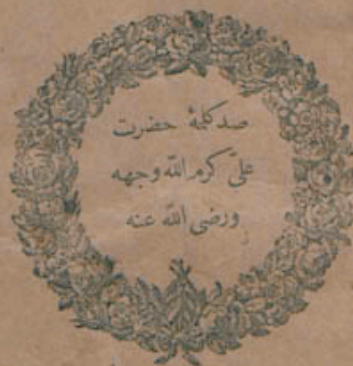 صد كلمۀ حضرت
علیّ كرم اللّه وجهه
ورضی اللّه عنه